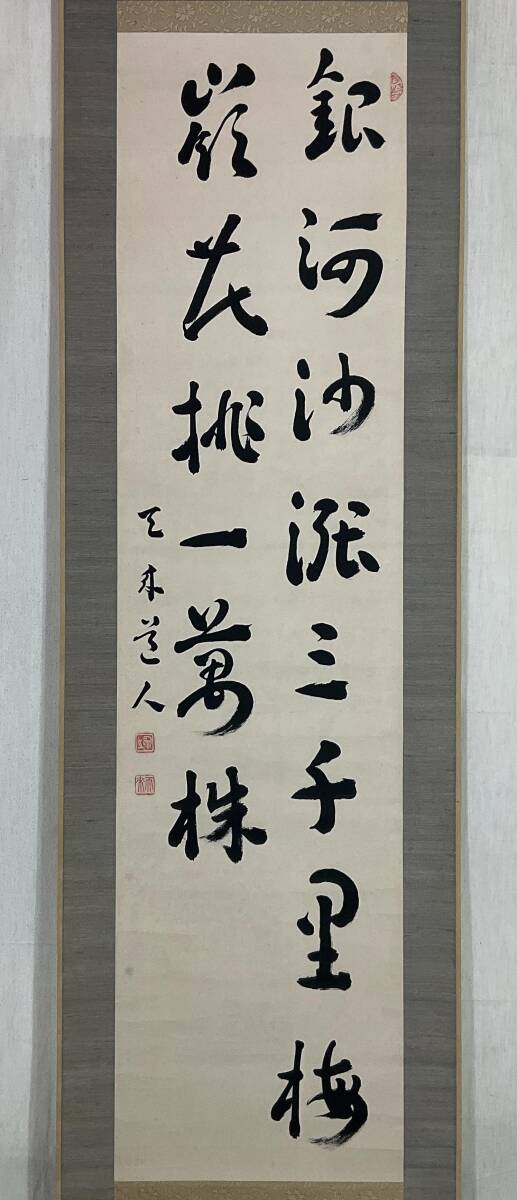 銀河沙漲三千里梅
嶺花排一萬株
天来道人